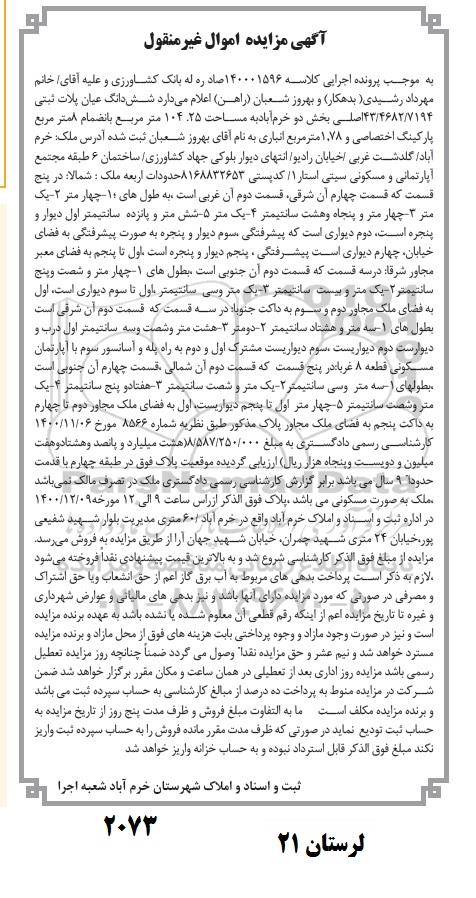 آگهی مزایده اموال غیرمنقول
به موجب پرونده اجرایی کلاسه ۱۴۰۰۰۱۵۹۶صاد ره له بانک کشاورزی و علیه آقای/ خانم
مهرداد رشیدی( بدهکار) و بهروز شعبان (راهن) اعلام می‌دارد شش‌دانگ عیان پلات ثبتی
۴۳/۴۶۸۲/۷۱۹۴اصلی بخش دو خرم‌آبادبه مساحت ۲۵. ۱۰۴ متر مربع بانضمام ۸متر مربع
پارکینگ اختصاصی و ۱,۷۸مترمربع انباری به نام آقای بهروز شعبان ثبت شده آدرس ملک: خرم
آباد/ گلدشت غربی /خیابان رادیو/ انتهای دیوار بلوکی جهاد کشاورزی/ ساختمان ۶ طبقه مجتمع
آپارتمانی و مسکونی سیتی استار۱/ کدپستی ۶۸۱۶۸۸۳۲۶۵۳حدودات اربعه ملک : شمالا: در پنج
قسمت که قسمت چهارم آن شرقی، قسمت دوم آن غربی است ،به طول های ؛۱-چهار متر ۲-یک
متر ۳-چهار متر و پنجاه وهشت سانتیمتر ۴-یک متر ۵-شش متر و پانزده سانتیمتر اول دیوار و
پنجره است، دوم دیواری است که پیشرفتگی ،سوم دیوار و پنجره به صورت پیشرفتگی به فضای
خیابان، چهارم دیواری است پیشرفتگی ، پنجم دیوار و پنجره است ،اول تا پنجم به فضای معبر
مجاور شرقا: درسه قسمت که قسمت دوم آن جنوبی است ،بطول های ۱-چهار متر و شصت وپنج
سانتیمتر۲-یک متر و بیست سانتیمتر ۳-یک متر وسی سانتیمتر ،اول تا سوم دیواری است، اول
به فضای ملک مجاور دوم و سوم به داکت جنوبا: در سه قسمت که قسمت دوم آن شرقی است
بطول های ۱-سه متر و هشتاد سانتیمتر ۲-دومتر ۳-هشت متر وشصت وسه سانتیمتر اول درب و
دیوارست دوم دیواریست ،سوم دیواریست مشترک اول و دوم به راه پله و آسانسور سوم با آپارتمان
مسکونی قطعه ۸ غربا:در پنج قسمت که قسمت دوم آن شمالی ،قسمت چهارم آن جنوبی است
،بطولهای ۱-سه متر وسی سانتیمتر۲-یک متر و شصت سانتیمتر ۳-هفتادو پنج سانتیمتر ۴-یک
متر وشصت سانتیمتر ۵-چهار متر اول تا پنجم دیواریست، اول به فضای ملک مجاور دوم تا چهارم
به داکت پنجم به فضای ملک مجاور پلاک مذکور طبق نظریه شماره ۸۵۶۶ مورخ ۱۴۰۰/۱۱/۰۶
کارشناسی رسمی دادگستری به مبلغ ۸/۵۸۷/۲۵۰/۰۰۰(هشت میلیارد و پانصد وهشتادوهفت
میلیون و دویست وپنجاه هزار ریال) ارزیابی گردیده موقعیت پلاک فوق در طبقه چهارم با قدمت
حدودا ۹ سال می باشد برابر گزارش کارشناسی رسمی دادگستری ملک در تصرف مالک نمی‌باشد
،ملک به صورت مسکونی می باشد ،پلاک فوق الذکر ازراس ساعت ۹ الی ۱۲ مورخه۱۴۰۰/۱۲/۰۹
در اداره ثبت و اسناد و املاک خرم آباد واقع در خرم آباد /۶۰متری مدیریت بلوار شهید شفیعی
پور،خیابان ۲۴ متری شهید چمران، خیابان شهید جهان آرا از طریق مزایده به فروش می‌رسد.
مزایده از مبلغ فوق الذکر کارشناسی شروع شد و به بالاترین قیمت پیشنهادی نقداً فروخته می‌شود
،لازم به ذکر است پرداخت بدهی های مربوط به آب برق گاز اعم از حق انشعاب ویا حق اشتراک
و مصرفی در صورتی که مورد مزایده دارای آنها باشد و نیز بدهی های مالیاتی و عوارض شهرداری
و غیره تا تاریخ مزایده اعم از اینکه رقم قطعی آن معلوم شده یا نشده باشد به عهده برنده مزایده
است و نیز در صورت وجود مازاد و وجوه پرداختی بابت هزینه های فوق از محل مازاد و برنده مزایده
مسترد خواهد شد و نیم عشر و حق مزایده نقدا وصول می گردد ضمناً چنانچه روز مزایده تعطیل
رسمی باشد مزایده روز اداری بعد از تعطیلی در همان ساعت و مکان مقرر برگزار خواهد شد ضمن
شرکت در مزایده منوط به پرداخت ده درصد از مبالغ کارشناسی به حساب سپرده ثبت می باشد
و برنده مزایده مکلف است ما به التفاوت مبلغ فروش و ظرف مدت پنج روز از تاریخ مزایده به
حساب ثبت تودیع نماید در صورتی که ظرف مدت مقرر مانده فروش را به حساب سپرده ثبت واریز
نکند مبلغ فوق الذکر قابل استرداد نبوده و به حساب خزانه واریز خواهد شد
ثبت و اسناد و املاک شهرستان خرم آباد شعبه اجرا
۲۰۷۳
لرستان ۲۱